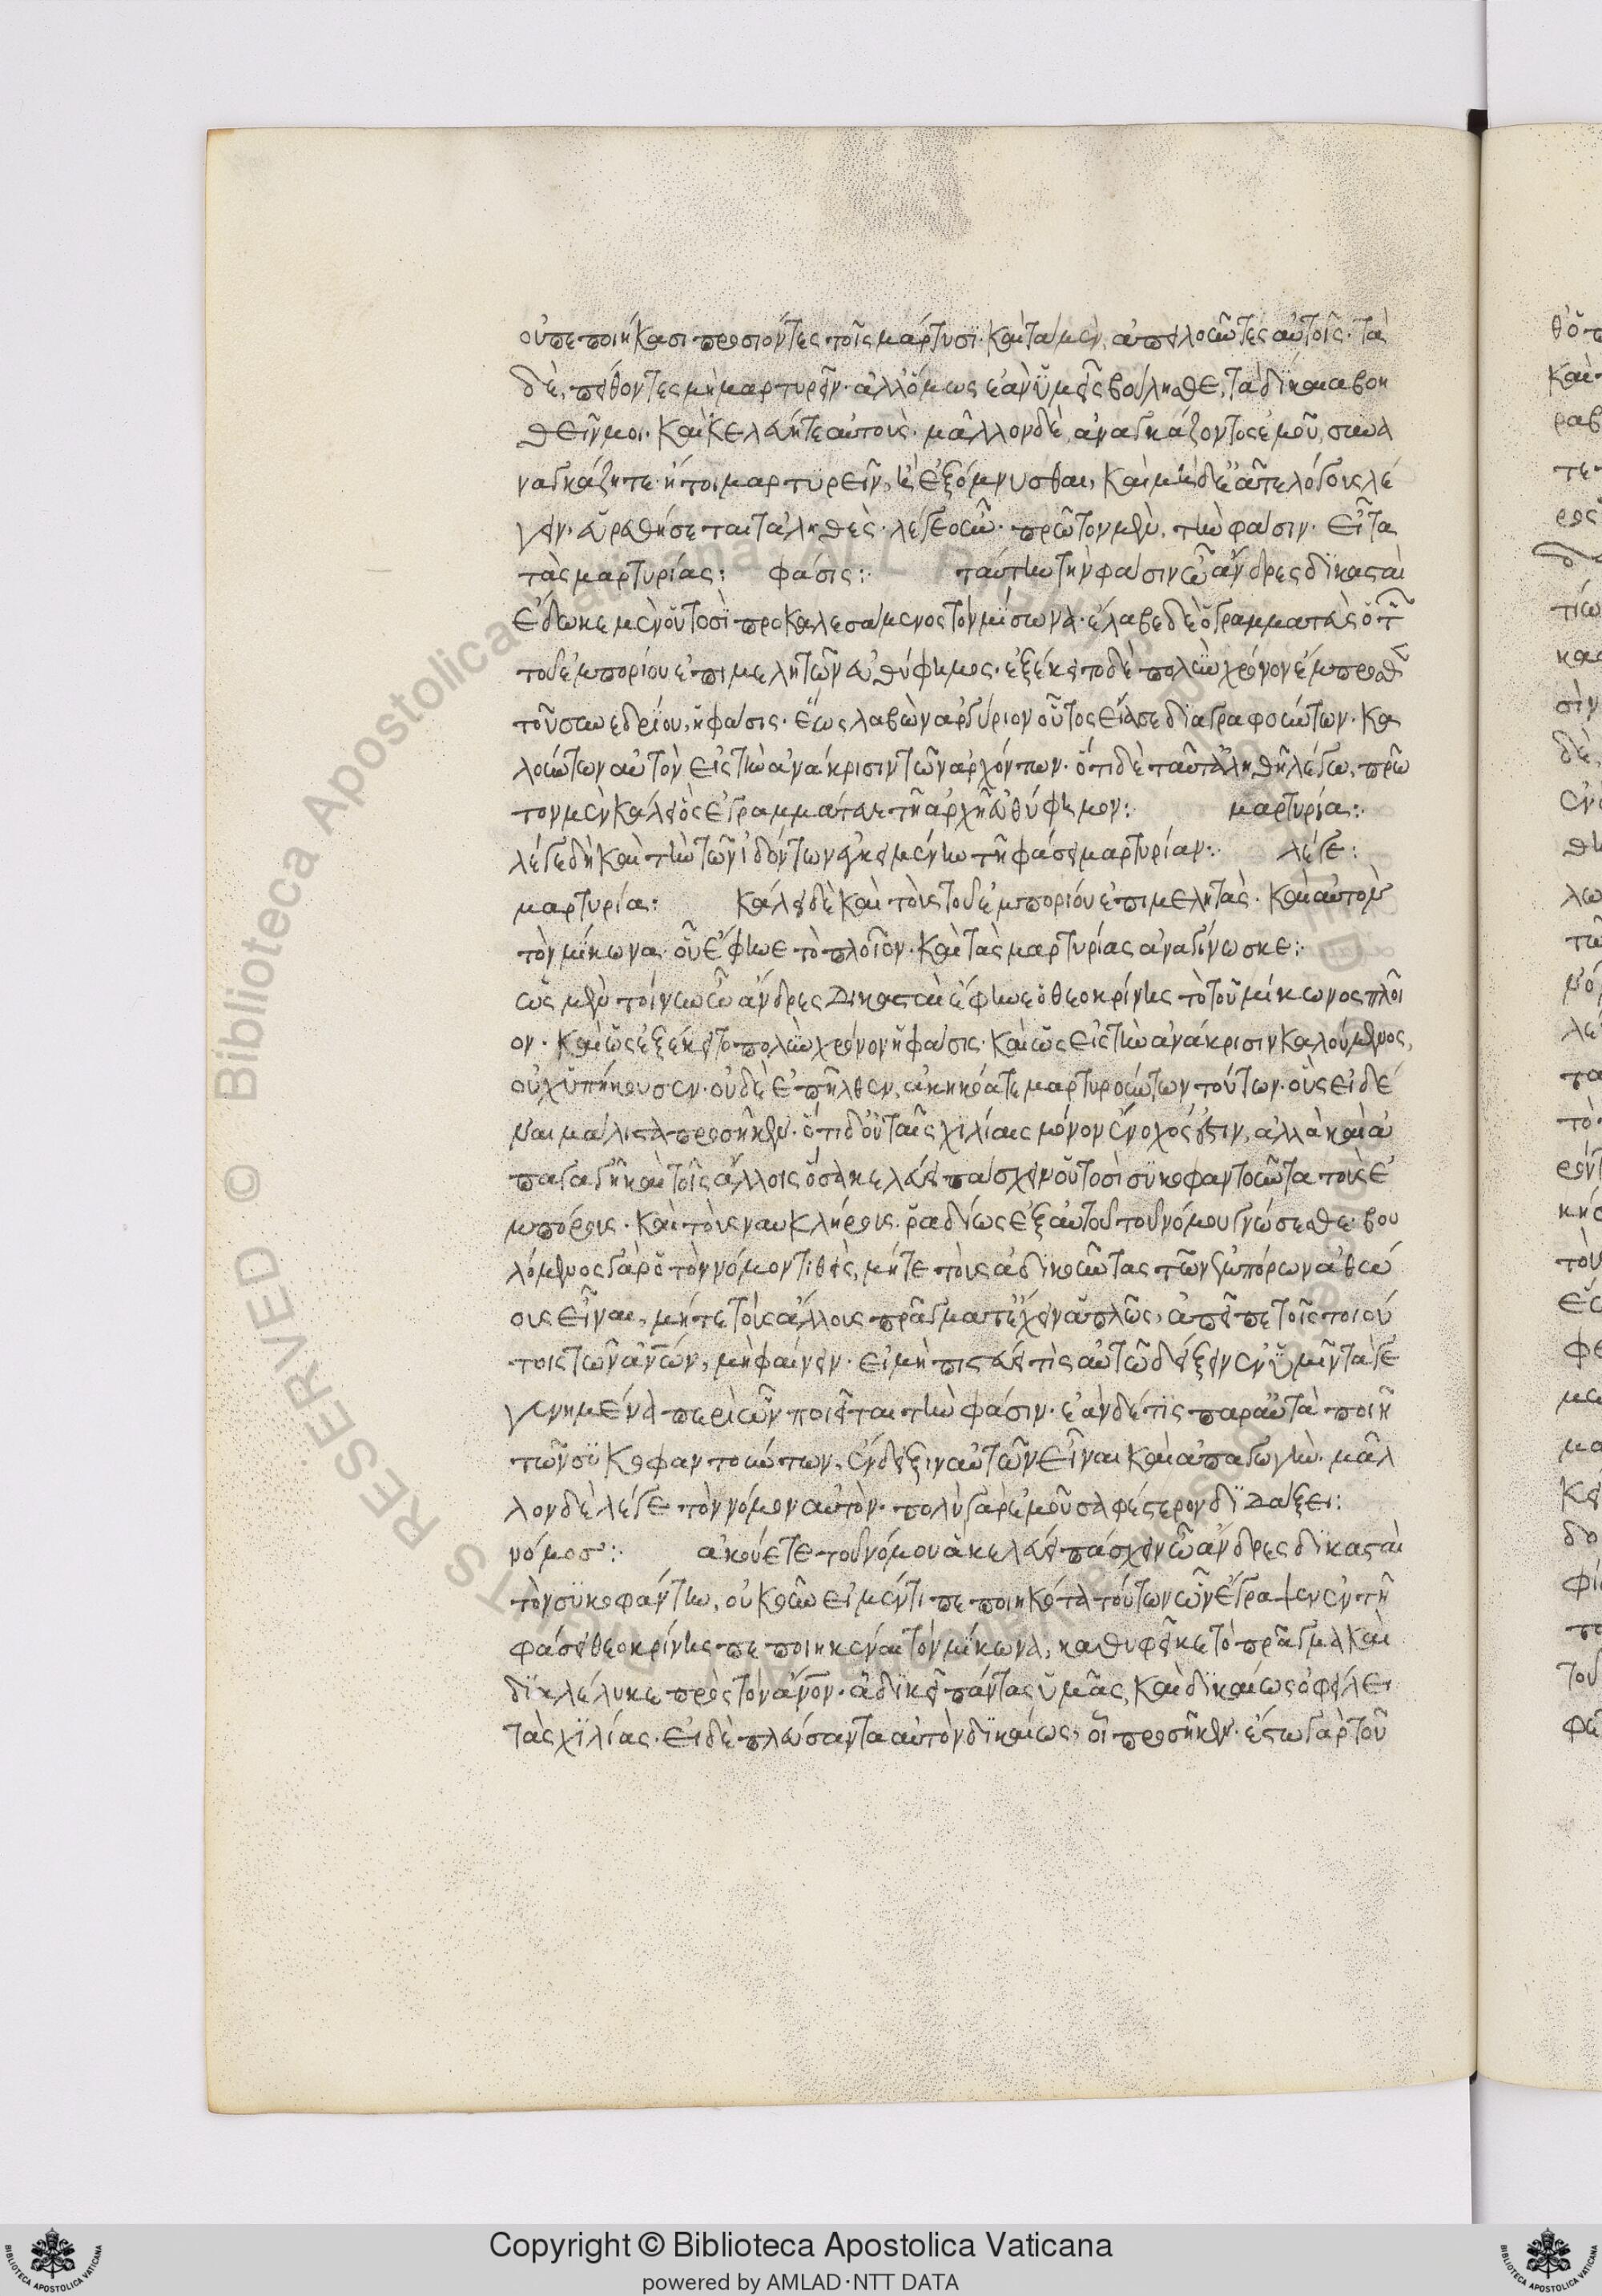 οὐ πεποιήκασι προσιόντες τοῖς μάρτυσι· καὶ τὰ μὲν, ἀπειλοῦντες αὐτοῖς· τὰ
δὲ, πείθοντες μὴ μαρτυρεῖν· ἀλλ' ὅμως ἐὰν ὑμεῖς βούλησθε, τὰ δίκαια βοη
θεῖν μοι· καὶ κελεύητε αὐτοὺς· μᾶλλον δὲ, ἀναγκάζοντος ἐμοῦ, συνα
ναγκάζητε· ἤτοι μαρτυρεῖν, ἢ ἐξόμνυσθαι, καὶ μὴ δὲ ἐᾶτε λόγους λέ
γειν· εὑρεθήσεται τἀληθὲς· λέγε οὖν· πρῶτον μὲν, τὴν φάσιν· εἶτα
τὰς μαρτυρίας: φάσις: ταύτην τὴν φάσιν ὦ ἄνδρες δικασταὶ
ἔδωκε μὲν οὑτοσὶ προκαλεσάμενος τὸν μίκωνα· ἔλαβε δὲ ὁ γραμματεὺς ὁ τῶν
τοῦ ἐμπορίου ἐπιμελητῶν εὐθύφημος· ἐξέκειτο δὲ πολὺν χρόνον ἔμπροσθεν
τοῦ συνεδρίου, ἡ φάσις· ἕως λαβὼν ἀργύριον οὗτος εἴασε διαγραφούντων· κα
λούντων αὐτὸν εἰς τὴν ἀνάκρισιν τῶν ἀρχόντων· ὅτι δὲ ταῦτ' ἀληθῆ λέγω, πρῶ
τον μὲν κάλει ὃς ἐγραμμάτευε τῇ ἀρχῇ εὐθύφημον: μαρτυρία:
λέγε δὴ καὶ τὴν τῶν ἰδόντων ἐκκειμένην τῆ φάσει μαρτυρίαν: λέγε:
μαρτυρία: κάλει δὲ καὶ τοὺς τοῦ ἐμπορίου ἐπιμελητὰς· καὶ αὐτὸν
τὸν μίκωνα· οὗ ἔφηνε τὸ πλοῖον· καὶ τὰς μαρτυρίας ἀναγίνωσκε:
ὡς μὲν τοίνυν ὦ ἄνδρες δικασταὶ ἔφηνε ὁ θεοκρίνης τὸ τοῦ μίκωνος πλοῖ
ον· καὶ ὡς ἐξέκειτο πολὺν χρόνον ἡ φάσις· καὶ ὡς εἰς τὴν ἀνάκρισιν καλούμενος,
οὐχ ὑπήκουσεν· οὐδὲ ἐπῆλθεν, ἀκηκόατε μαρτυρούντων τούτων· οὓς εἰδέ
ναι μάλιστα προσῆκεν· ὅτι δ' οὐ ταῖς χιλίαις μόνον ἔνοχός ἐστιν, ἀλλὰ καὶ ἀ
παγωγῆ καὶ τοῖς ἄλλοις ὅσα κελεύει πάσχειν οὑτοσὶ συκοφαντοῦντα τοὺς ἐ
μπόρους· καὶ τοὺς ναυκλήρους· ῥαδίως ἐξ αὐτοῦ τοῦ νόμου γνώσεσθε· βου
λόμενος γὰρ ὁ τὸν νόμον τιθεὶς, μήτε τοὺς ἀδικοῦντας τῶν ἐμπόρων ἀθώ
ους εἶναι, μήτε τοῖς ἄλλοις πράγματ' ἔχειν ἁπλῶς, ἀπεῖπε τοῖς τοιού
τοις τῶν ἀνων, μὴ φαίνειν· εἰ μὴ πιστεύει τὶς αὐτῶ δείξειν ἐν ὑμῖν τὰ γε
γενημένα περὶ ὧν ποιεῖται τὴν φάσιν· ἐὰν δέ τις παρὰ ταῦτα ποιῆ
τῶν συκοφαντούντων, ἔνδειξιν αὐτῶν εἶναι καὶ ἀπαγωγὴν· μᾶλ
λον δὲ λέγε τὸν νόμον αὐτὸν· πολὺ γὰρ ἐμοῦ σαφέστερον διδάξει:
νόμοσ: ἀκούετε τοῦ νόμου ἃ κελεύει πάσχειν ὦ ἄνδρες δικασταὶ
τὸν συκοφάντην, οὐκ οὖν εἰ μέν τι πεποιηκότα τούτων ὧν ἔγραψεν ἐν τῆ
φάσει θεοκρίνης πεποιηκέναι τὸν μίκωνα, καθυφεῖκε τὸ πρᾶγμα καὶ
διαλέλυκε πρὸς τὸν ἄνον· ἀδικεῖ πάντας ὑμᾶς, καὶ δικαίως ὀφείλει
τὰς χιλίας· εἰ δὲ πλεύσαντα αὐτὸν δικαίως, οἷ προσῆκεν· ἔστω γὰρ τοῦ
Copyright © Biblioteca Apostolica Vaticana
powered by AMLAD·NTT DATA